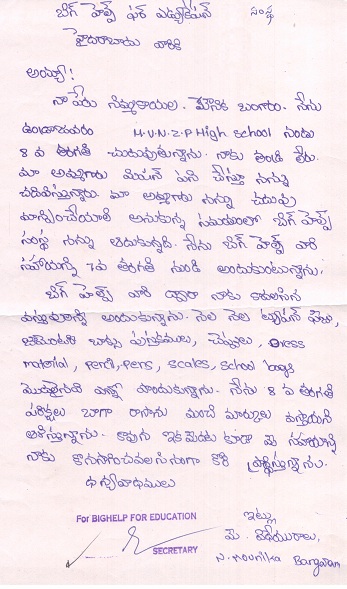 బిగ్ హెల్ప్ ఫర్ ఎడ్యుకేషన్ సంస్థ
హైదరాబాదు వారికి
అయ్యా!
నా పేరు నిమ్మకాయల. మౌనిక బంగారం. నేను
ఉండ్రాజవరం M.V.N.Z.P High school నందు
8 వ తరగతి చదువుతున్నాను. నాకు తండ్రి లేరు.
మా అమ్మగారు మిషన్ పని చేస్తూ నన్ను
చదివిస్తున్నారు. మా అమ్మగారు నన్ను చదువు
మాన్పించేయాలి అనుకున్న సమయంలో బిగ్ హెల్ప్
సంస్థ నన్ను ఆదుకున్నది. నేను బిగ్ హెల్ప్ వారి
సహాయాన్ని 7వ తరగతి నుండి అందుకుంటున్నాను.
బిగ్ హెల్ప్ వారి ద్వారా నాకు కావలసిన
వస్తువులన్నీ అందుకున్నాను. నెల నెల ట్యూషన్ ఫీజు,
జామెంటరీ బాక్సు పుస్తకములు, చెప్పులు, Dress
material, pencil, pens, scales, school bags
మొదలైనవి ఎన్నో పొందుకున్నాను. నేను 8 వ తరగతి
పరీక్షలు బాగా రాసాను మంచి మార్కులు వస్తాయని
ఆశిస్తున్నాను. కావున ఇకమీదట కూడా మీ సహాయాన్ని
నాకు కొనసాగించవలసినదిగా కోరి ప్రార్థిస్తున్నాను.
ధన్యవాదములు
For BIGHELP FOR EDUCATION
SECRETARY
ఇట్లు
మీ విధేయురాలు,
N. Mounika Bangaram